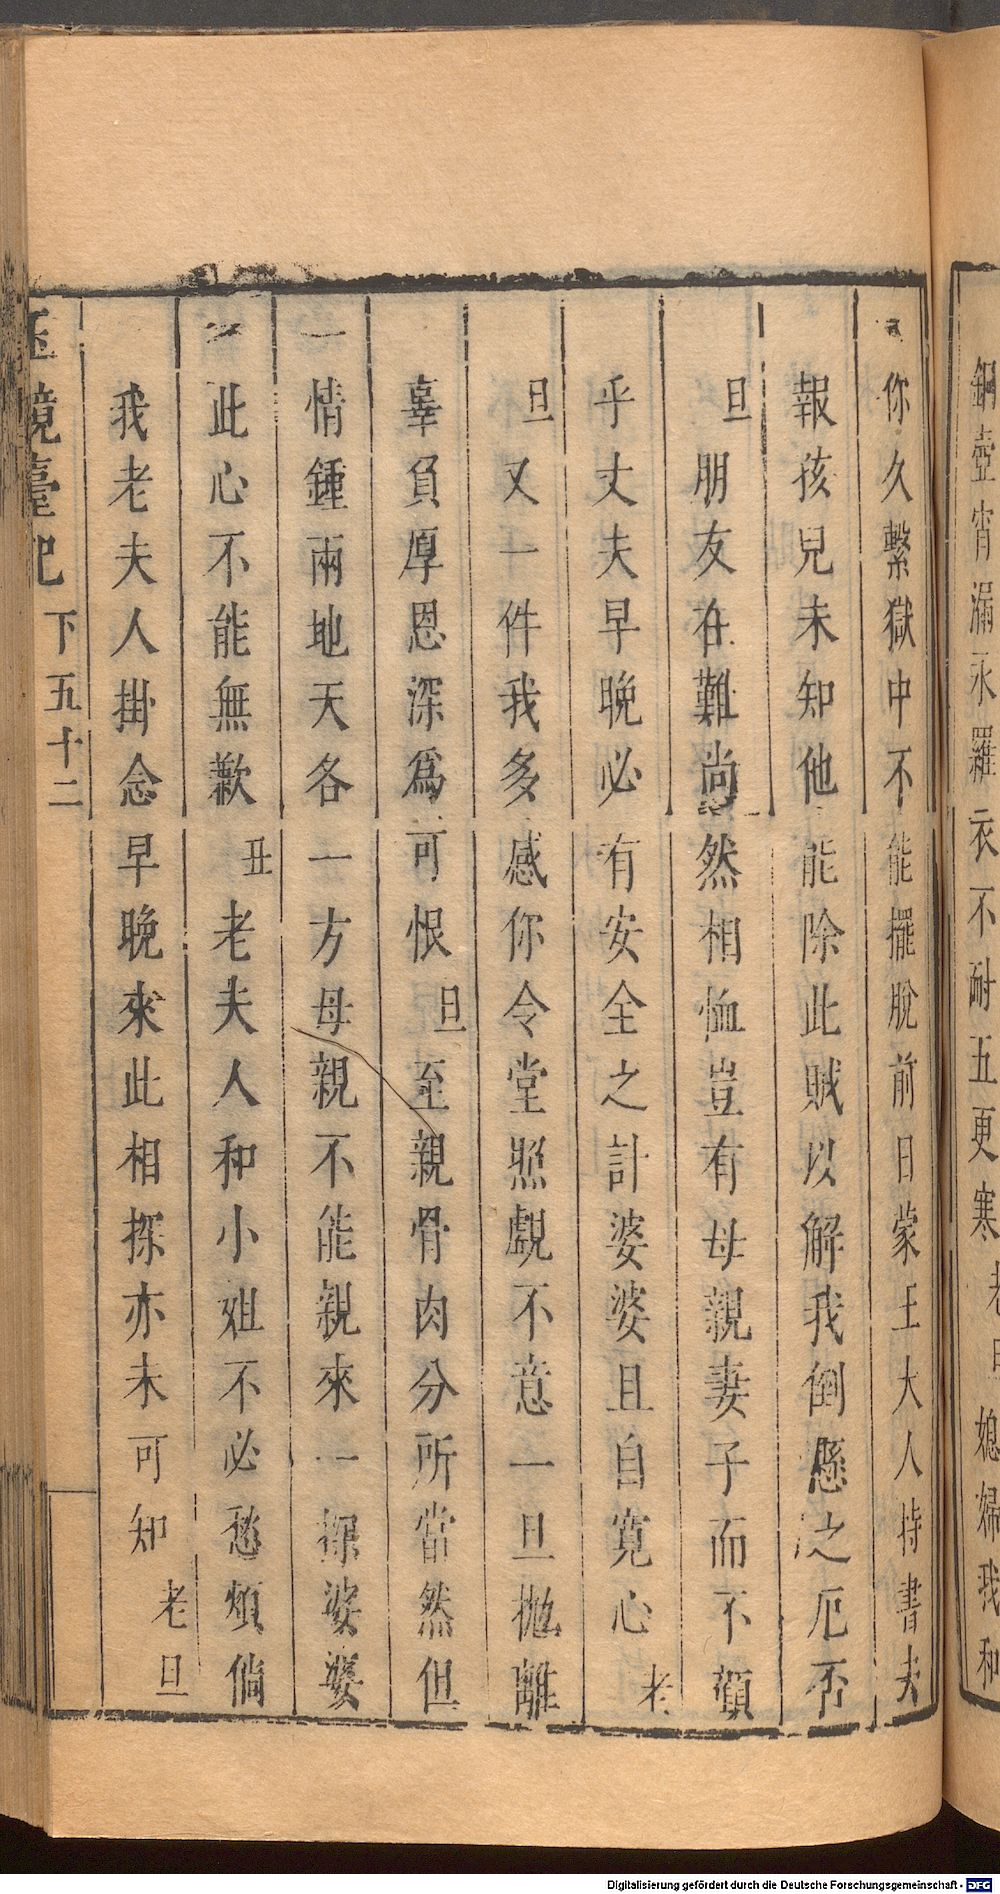 銅壺宵漏永羅衣不耐五更寒老旦媳婦我和
你久繫獄中不能擺脫前日蒙王大人持書去
報孩兒未知他能除此賊以解我倒懸之厄否
旦朋友在難尚然相恤豈有母親妻子而不顧
乎丈夫早晚必有安全之計婆婆且自寬心老
旦又一件我多感你令堂照覷不意一旦拋離
辜負厚恩深為可恨旦至親骨肉分所當然但
情鍾兩地天各一方母親不能親來一探婆婆
此心不能無歉丑老夫人和小姐不必愁煩倘
我老夫人掛念早晚來此相探亦未可知老旦
玉鏡臺記 下五十二
Digitalisierung gefördert durch die Deutsche Forschungsgemeinschaft - DFG